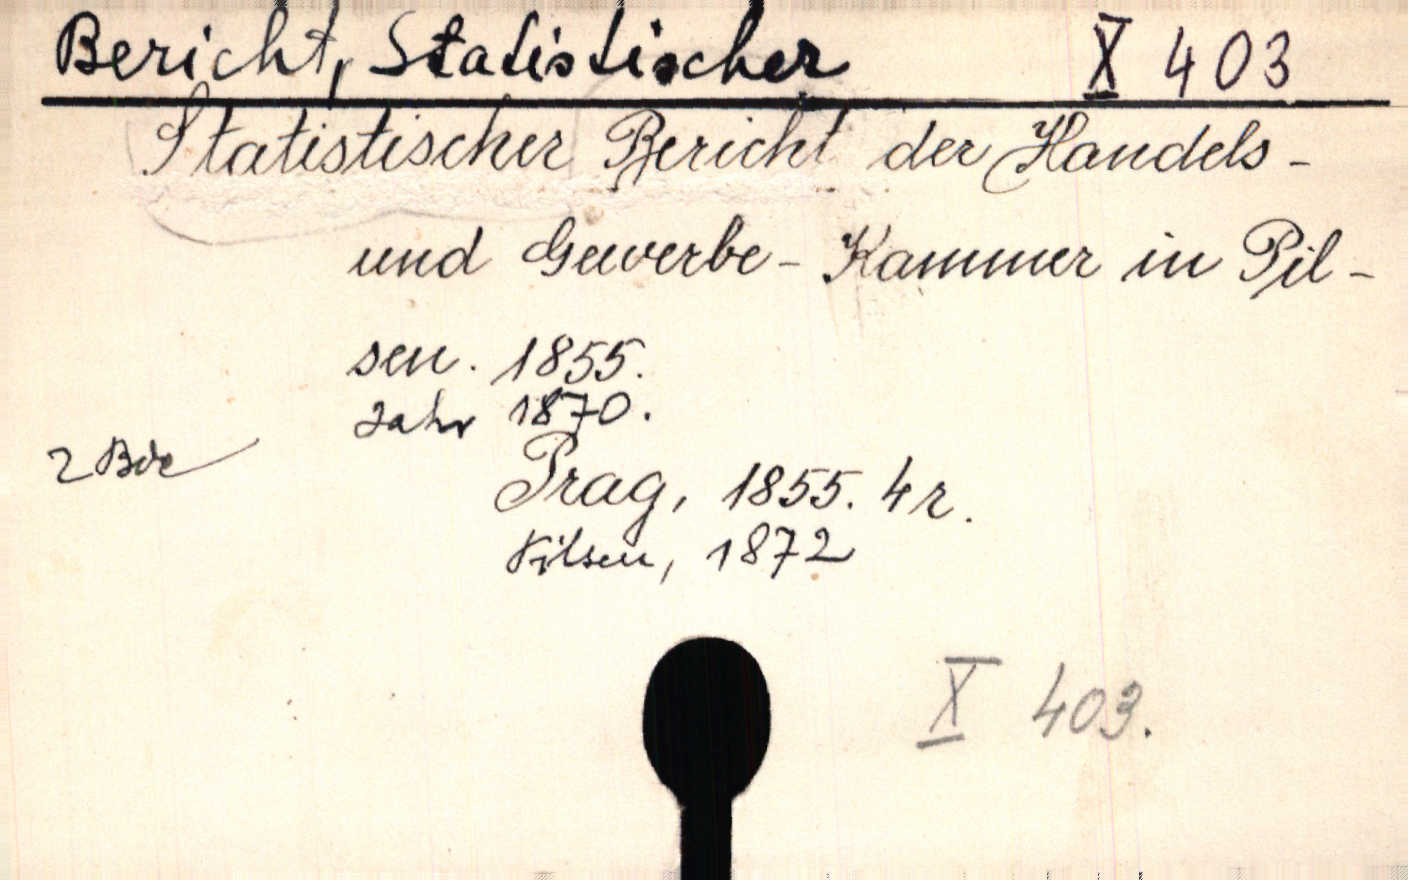 Bericht, Statistischer X 403
Statistischer Bericht der Handels-
und Gewerbe-Kammer in Pil-
sen. 1855.
Jahr 1870.
2 Bde
Prag, 1855. 4r.
Pilsen, 1872
X 403.